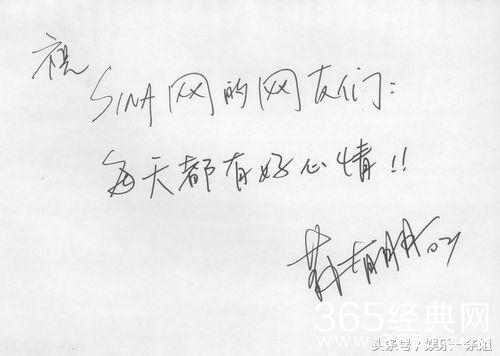 祝
SINA网的网友们:
每天都有好心情!!
365经典网
头条号/娱乐一余姐